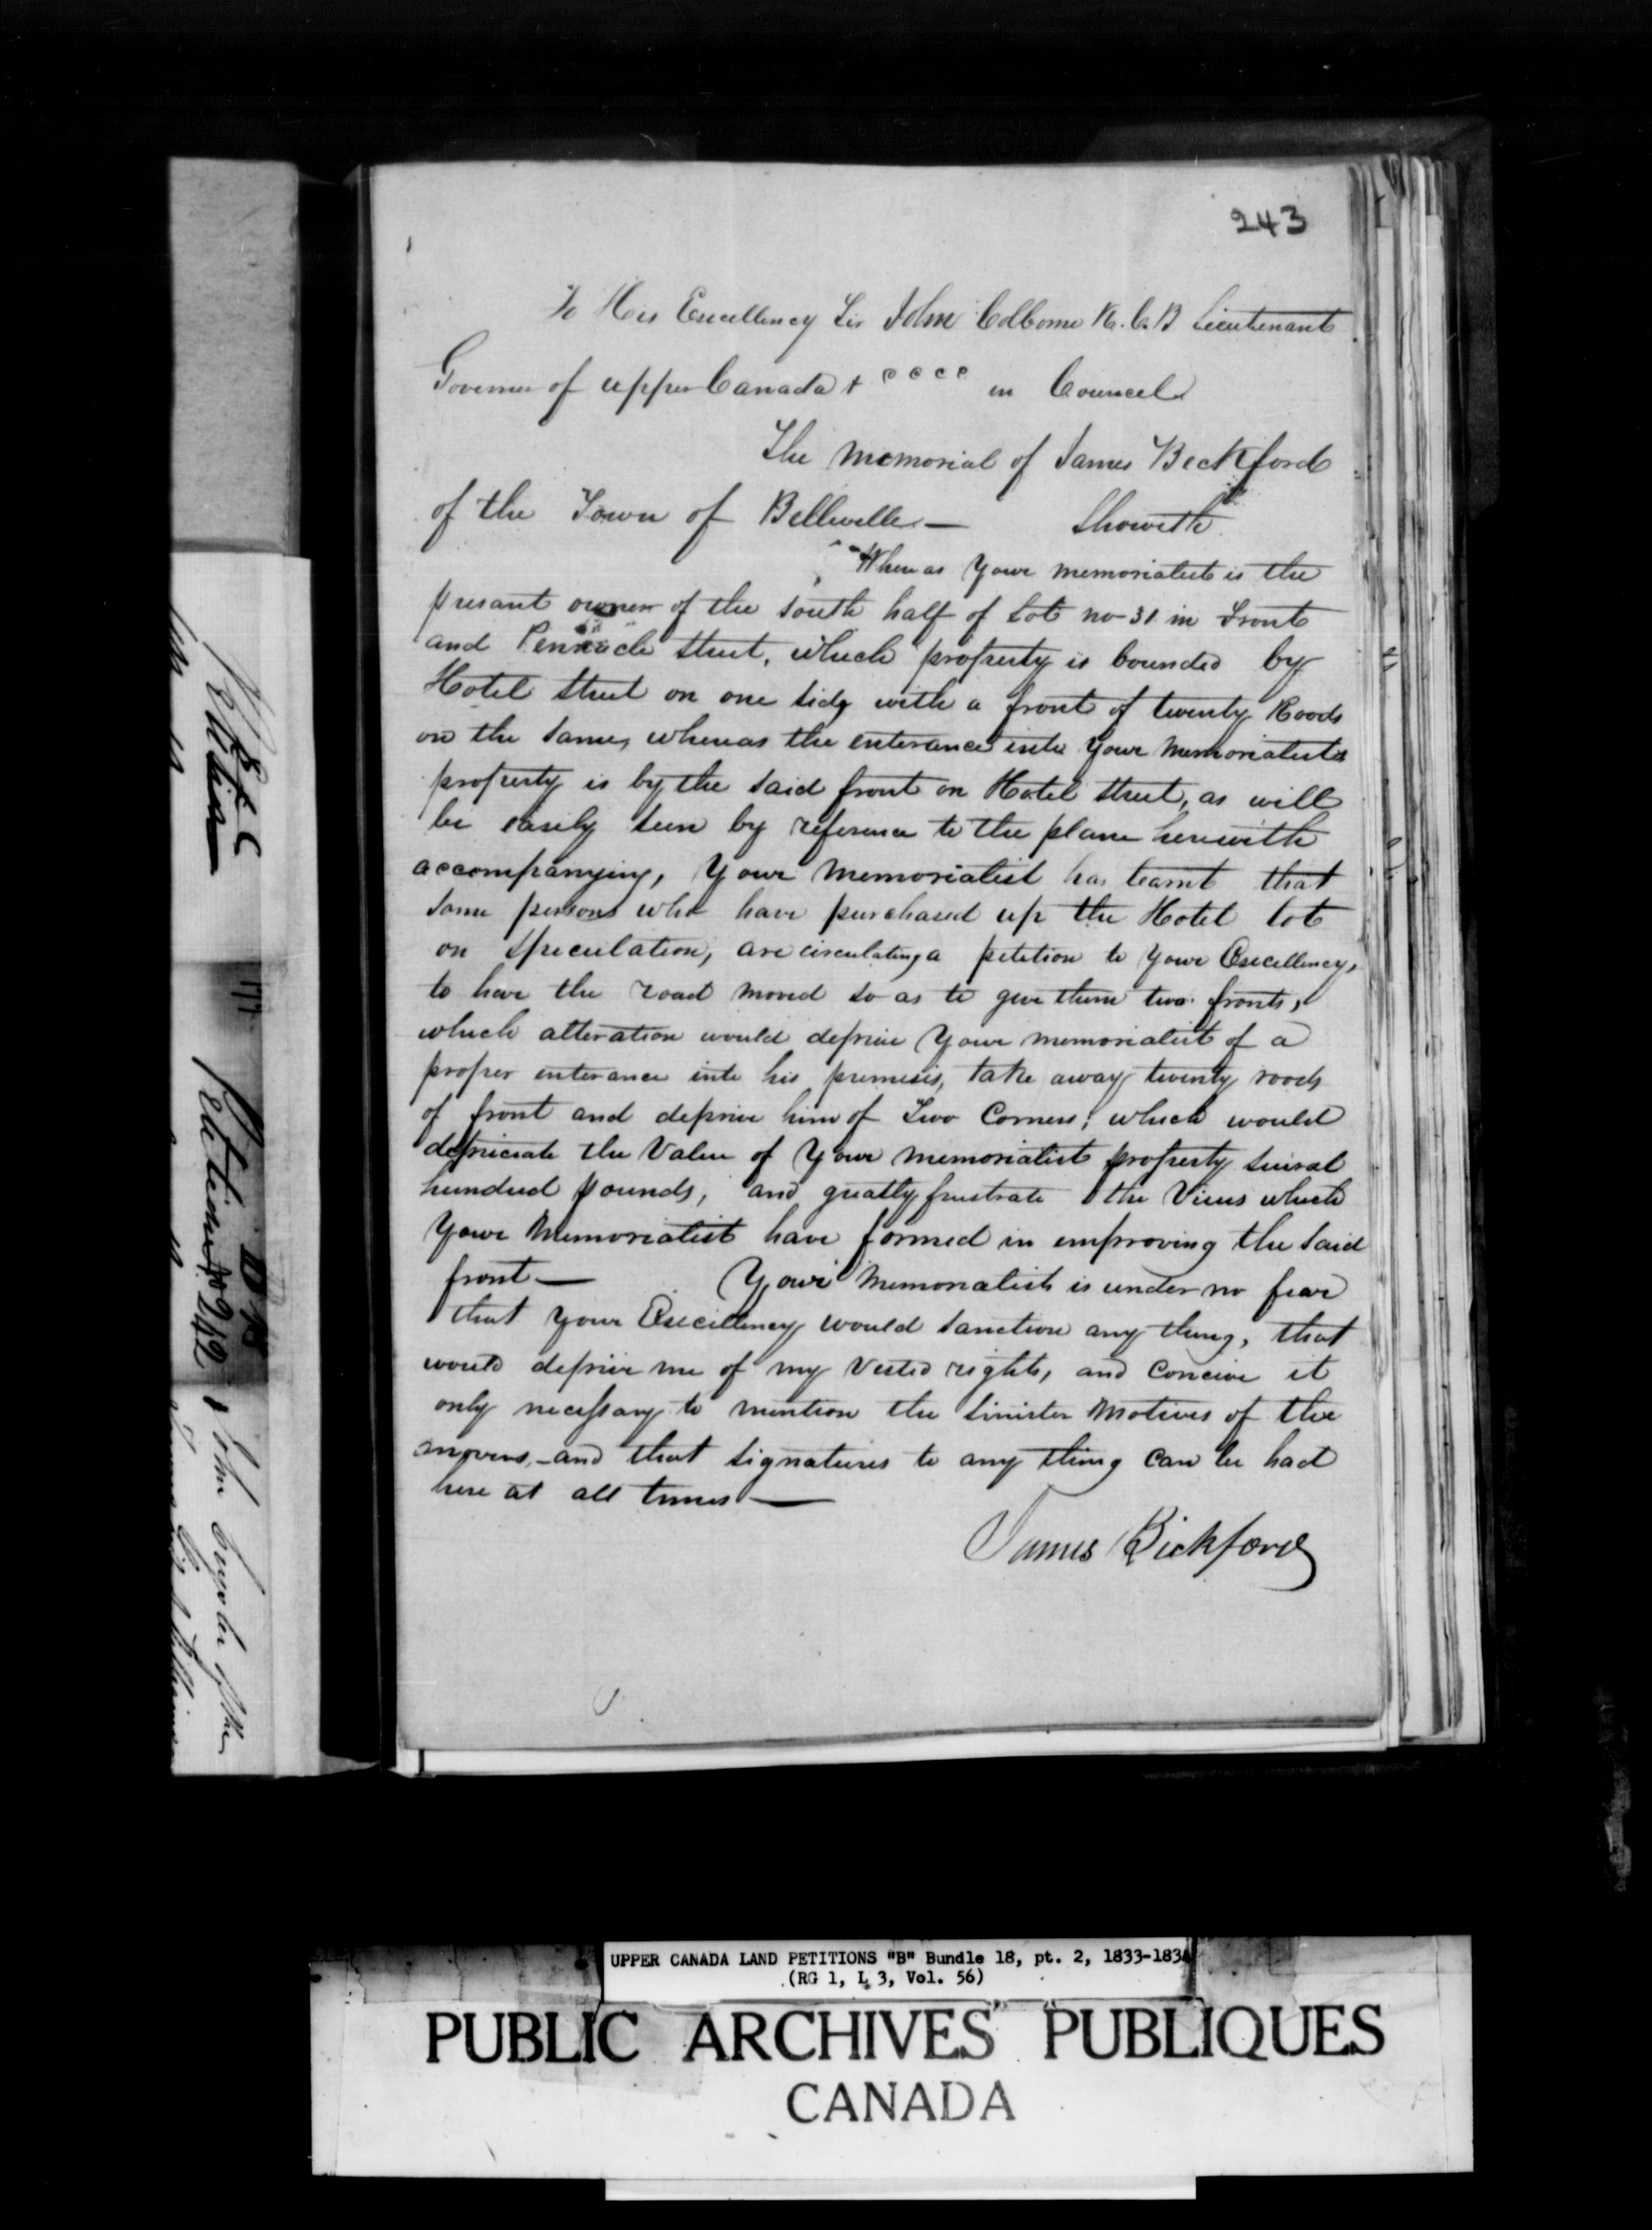 243
To His Excellency Sir John Colborne K.C.B Lieutenant
Governer of upper Canada & c c c c in Councel
The Memorial of James Beckford
of the Town of Belleville — Showeth
Whereas Your memorialist is the
presant owner of the south half of Lot no 31 in Front
and Pennacle Street, which property is bounded by
Hotel Street on one side with a front of twenty Roods
on the same, whereas the enterance into Your Memorialists
property is by the said front on Hotel Street, as will
be easily seen by reference to the plan herewith
accompanying, Your Memorialist has learnt that
some persons who have purchased up the Hotel lot
on Speculation, are circulating a petition to Your Excellency,
to have the road moved so as to give them two fronts,
which alteration would deprive Your memorialist of a
proper enterance into his premisis, take away twenty roods
of front and deprive him of Two Corners; which would
depriciate the Value of Your memorialist property sevral
hundred pounds, and greatly frustrate the Views which
Your Memorialist have formed in improving the said
front — Your Memorialist is under no fear
that Your Excellency would sanction any thing, that
would deprive me of my Vested rights, and Conceive it
only necessary to mention the Sinister Motives of the
movers, - and that Signatures to any thing can be had
here at all times —
James Bickford
Petition
No 242
UPPER CANADA LAND PETITIONS "B" Bundle 18, pt. 2, 1833-1834
(RG 1, L 3, Vol. 56)
PUBLIC ARCHIVES PUBLIQUES
CANADA